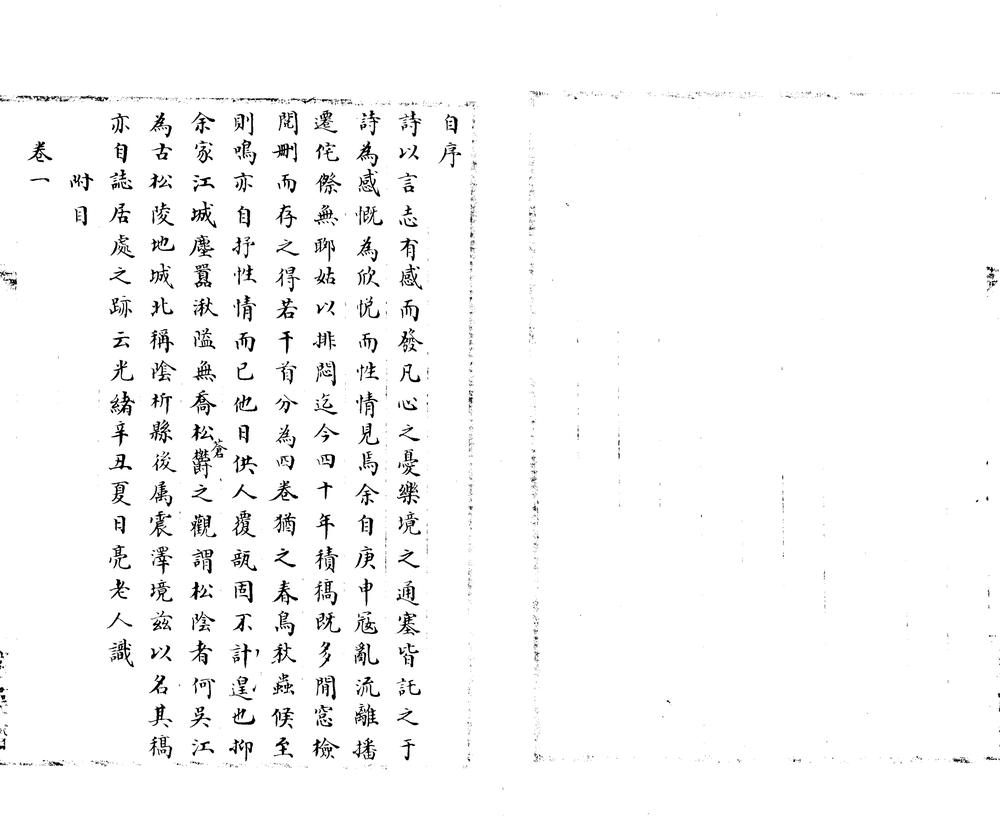 自序
詩以言志有感而發凡心之憂樂境之通塞皆託之于
詩為感慨為欣悅而性情見焉余自庚申寇亂流離播
遷侘傺無聊姑以排悶迄今四十年積稿既多閒窓檢
閱刪而存之得若干首分為四卷猶之春鳥秋蟲候至
則鳴亦自抒性情而已他日供人覆瓿固不計遑也抑
余家江城塵囂湫隘無喬松蒼欝之觀謂松陰者何吳江
為古松陵地城北稱陰析縣後属震澤境茲以名其稿
亦自誌居處之跡云光緒辛丑夏日亮老人識
附目
卷一